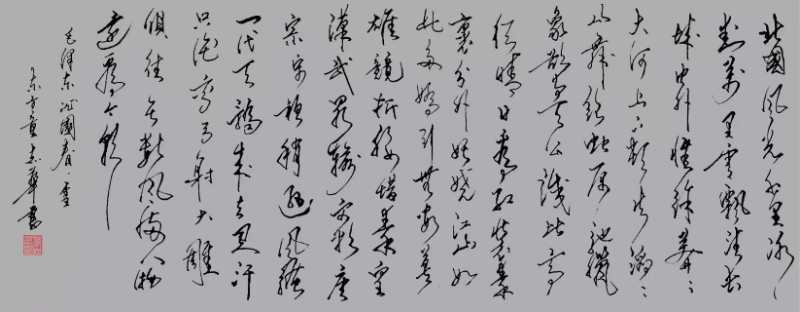 北國風光千里冰
封萬里雪飄望長
城内外惟餘莽〻
大河上下頓失滔〻
山舞銀蛇原馳蠟
象欲與天公試比高
須晴日看紅裝素
裹分外妖嬈江山如
此多嬌引無數英
雄競折腰惜秦皇
漢武略輸文采唐
宗宋祖稍遜風騷
一代天驕成吉思汗
只識彎弓射大雕
俱往矣數風流人物
還看今朝
毛澤東沁園春·雪
志華書